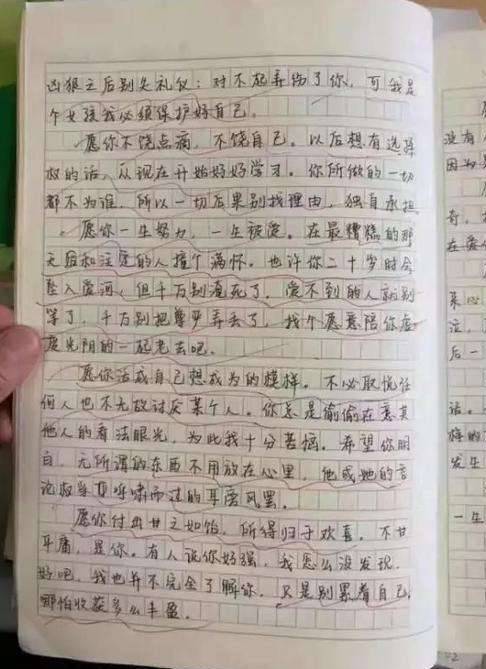 凶狠之后别失礼仪：对不起弄伤了你，可我是
个女孩我必须保护好自己。
愿你不饶点滴，不饶自己。以后想有选择
权的话，从现在开始好好学习。你所做的一切
都不为谁，所以一切后果别找理由，独自承担。
愿你一生努力，一生被爱。在最糟糕的那
天后和注定的人撞个满怀。也许你二十岁时会
坠入爱河，但千万别淹死了，爱不到的人就别
等了，千万别把尊严弄丢了，找个愿意陪你虚
度光阴的一起老去吧。
愿你活成自己想成为的模样。不必取悦任
何人也不无故讨厌某个人。你总是偷偷在意其
他人的看法眼光，为此我十分苦恼。希望你明
白，无所谓的东西不用放在心里，他或她的言
论权当耳呼啸而过的耳旁风罢。
愿你付出甘之如饴，所得归于欢喜。不甘
平庸，是你。有人说你好强，我怎么没发现。
好吧，我也并不完全了解你，只是别累着自己，
哪怕收获多么丰盈。
没有
因为
在爱
后一
话。
发生
一生